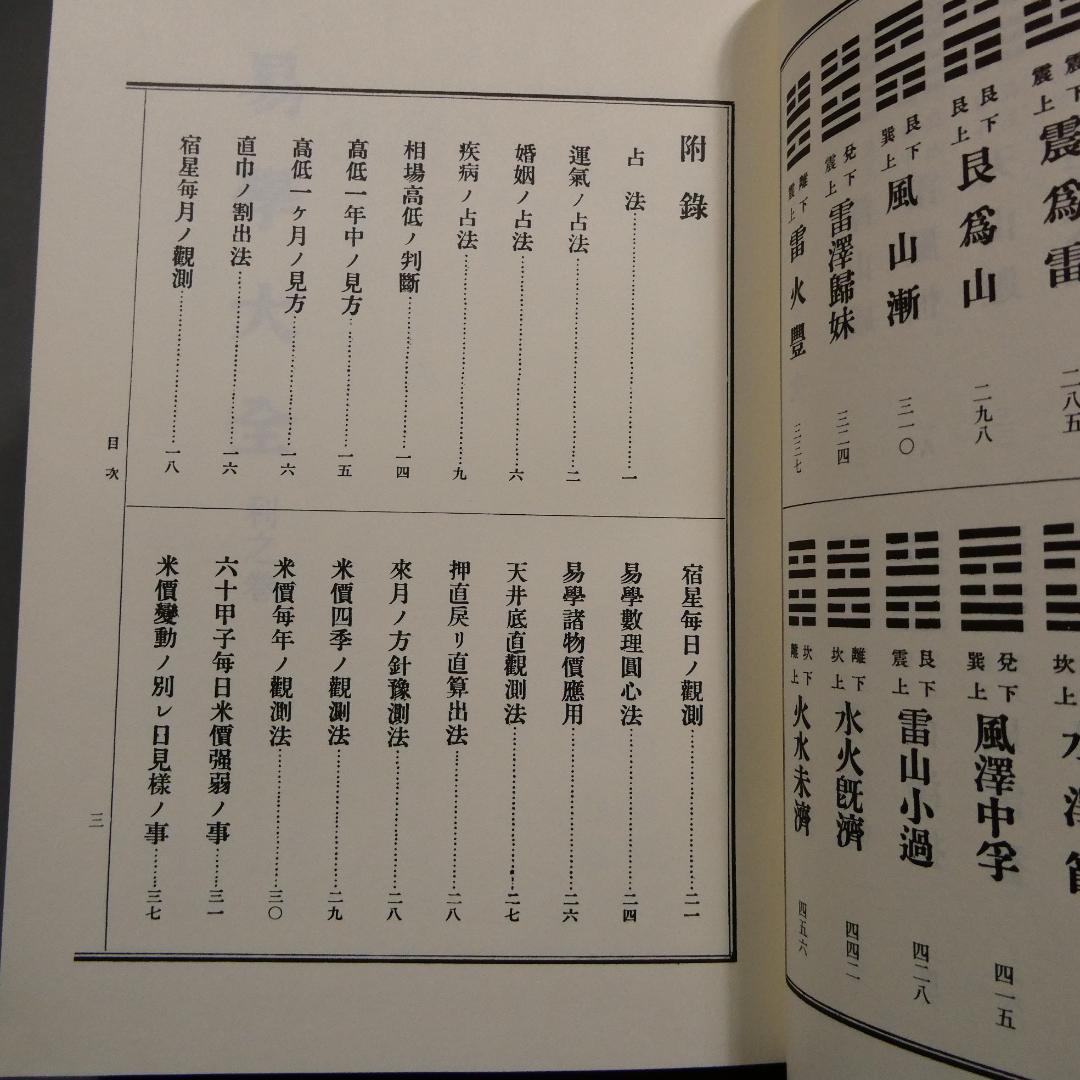 震下 震上 震爲雷 二八五
艮下 艮上 艮爲山 二九八
艮下 巽上 風山漸 三一〇
兌下 震上 雷澤歸妹 三二四
離下 震上 雷火豐 三三七
坎上
兌下 巽上 風澤中孚 四一五
艮下 震上 雷山小過 四二八
離下 坎上 水火旣濟 四四二
坎下 離上 火水未濟 四五六
附錄
占法……一
運氣ノ占法……二
婚姻ノ占法……六
疾病ノ占法……九
相場高低ノ判斷……一四
高低一年中ノ見方……一五
高低一ヶ月ノ見方……一六
直巾ノ割出法……一六
宿星每月ノ觀測……一八
宿星每日ノ觀測……二一
易學數理圓心法……二四
易學諸物價應用……二六
天井底直觀測法……二七
押直戾リ直算出法……二八
來月ノ方針豫測法……二八
米價四季ノ觀測法……二九
米價每年ノ觀測法……三〇
六十甲子每日米價强弱ノ事……三一
米價變動ノ別レ日見樣ノ事……三七
目次
三